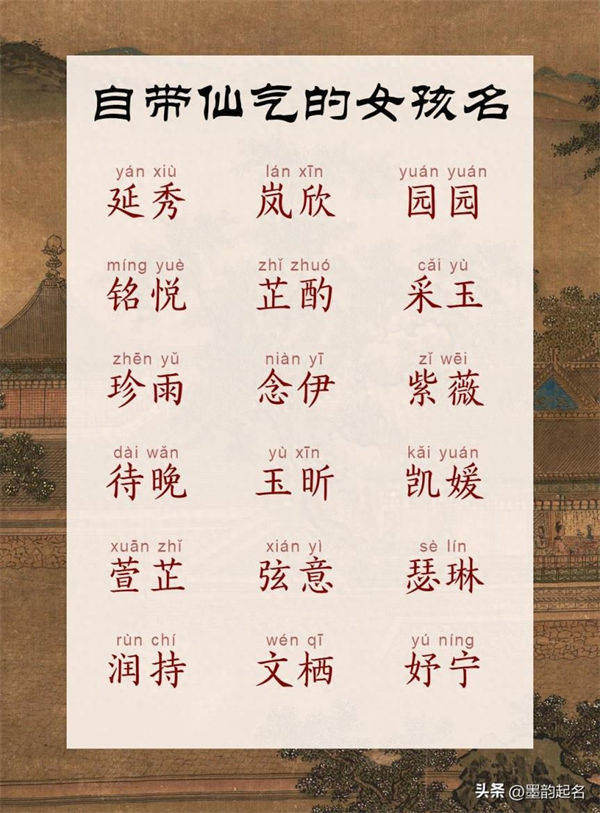 自带仙气的女孩名
yán xiù lán xīn yuán yuán
延秀 岚欣 园园
míng yuè zhǐ zhuó cǎi yù
铭悦 芷酌 采玉
zhēn yǔ niàn yī zǐ wēi
珍雨 念伊 紫薇
dài wǎn yù xīn kǎi yuán
待晚 玉昕 凯媛
xuān zhǐ xián yì sè lín
萱芷 弦意 瑟琳
rùn chí wén qī yú níng
润持 文栖 妤宁
头条 @墨韵起名